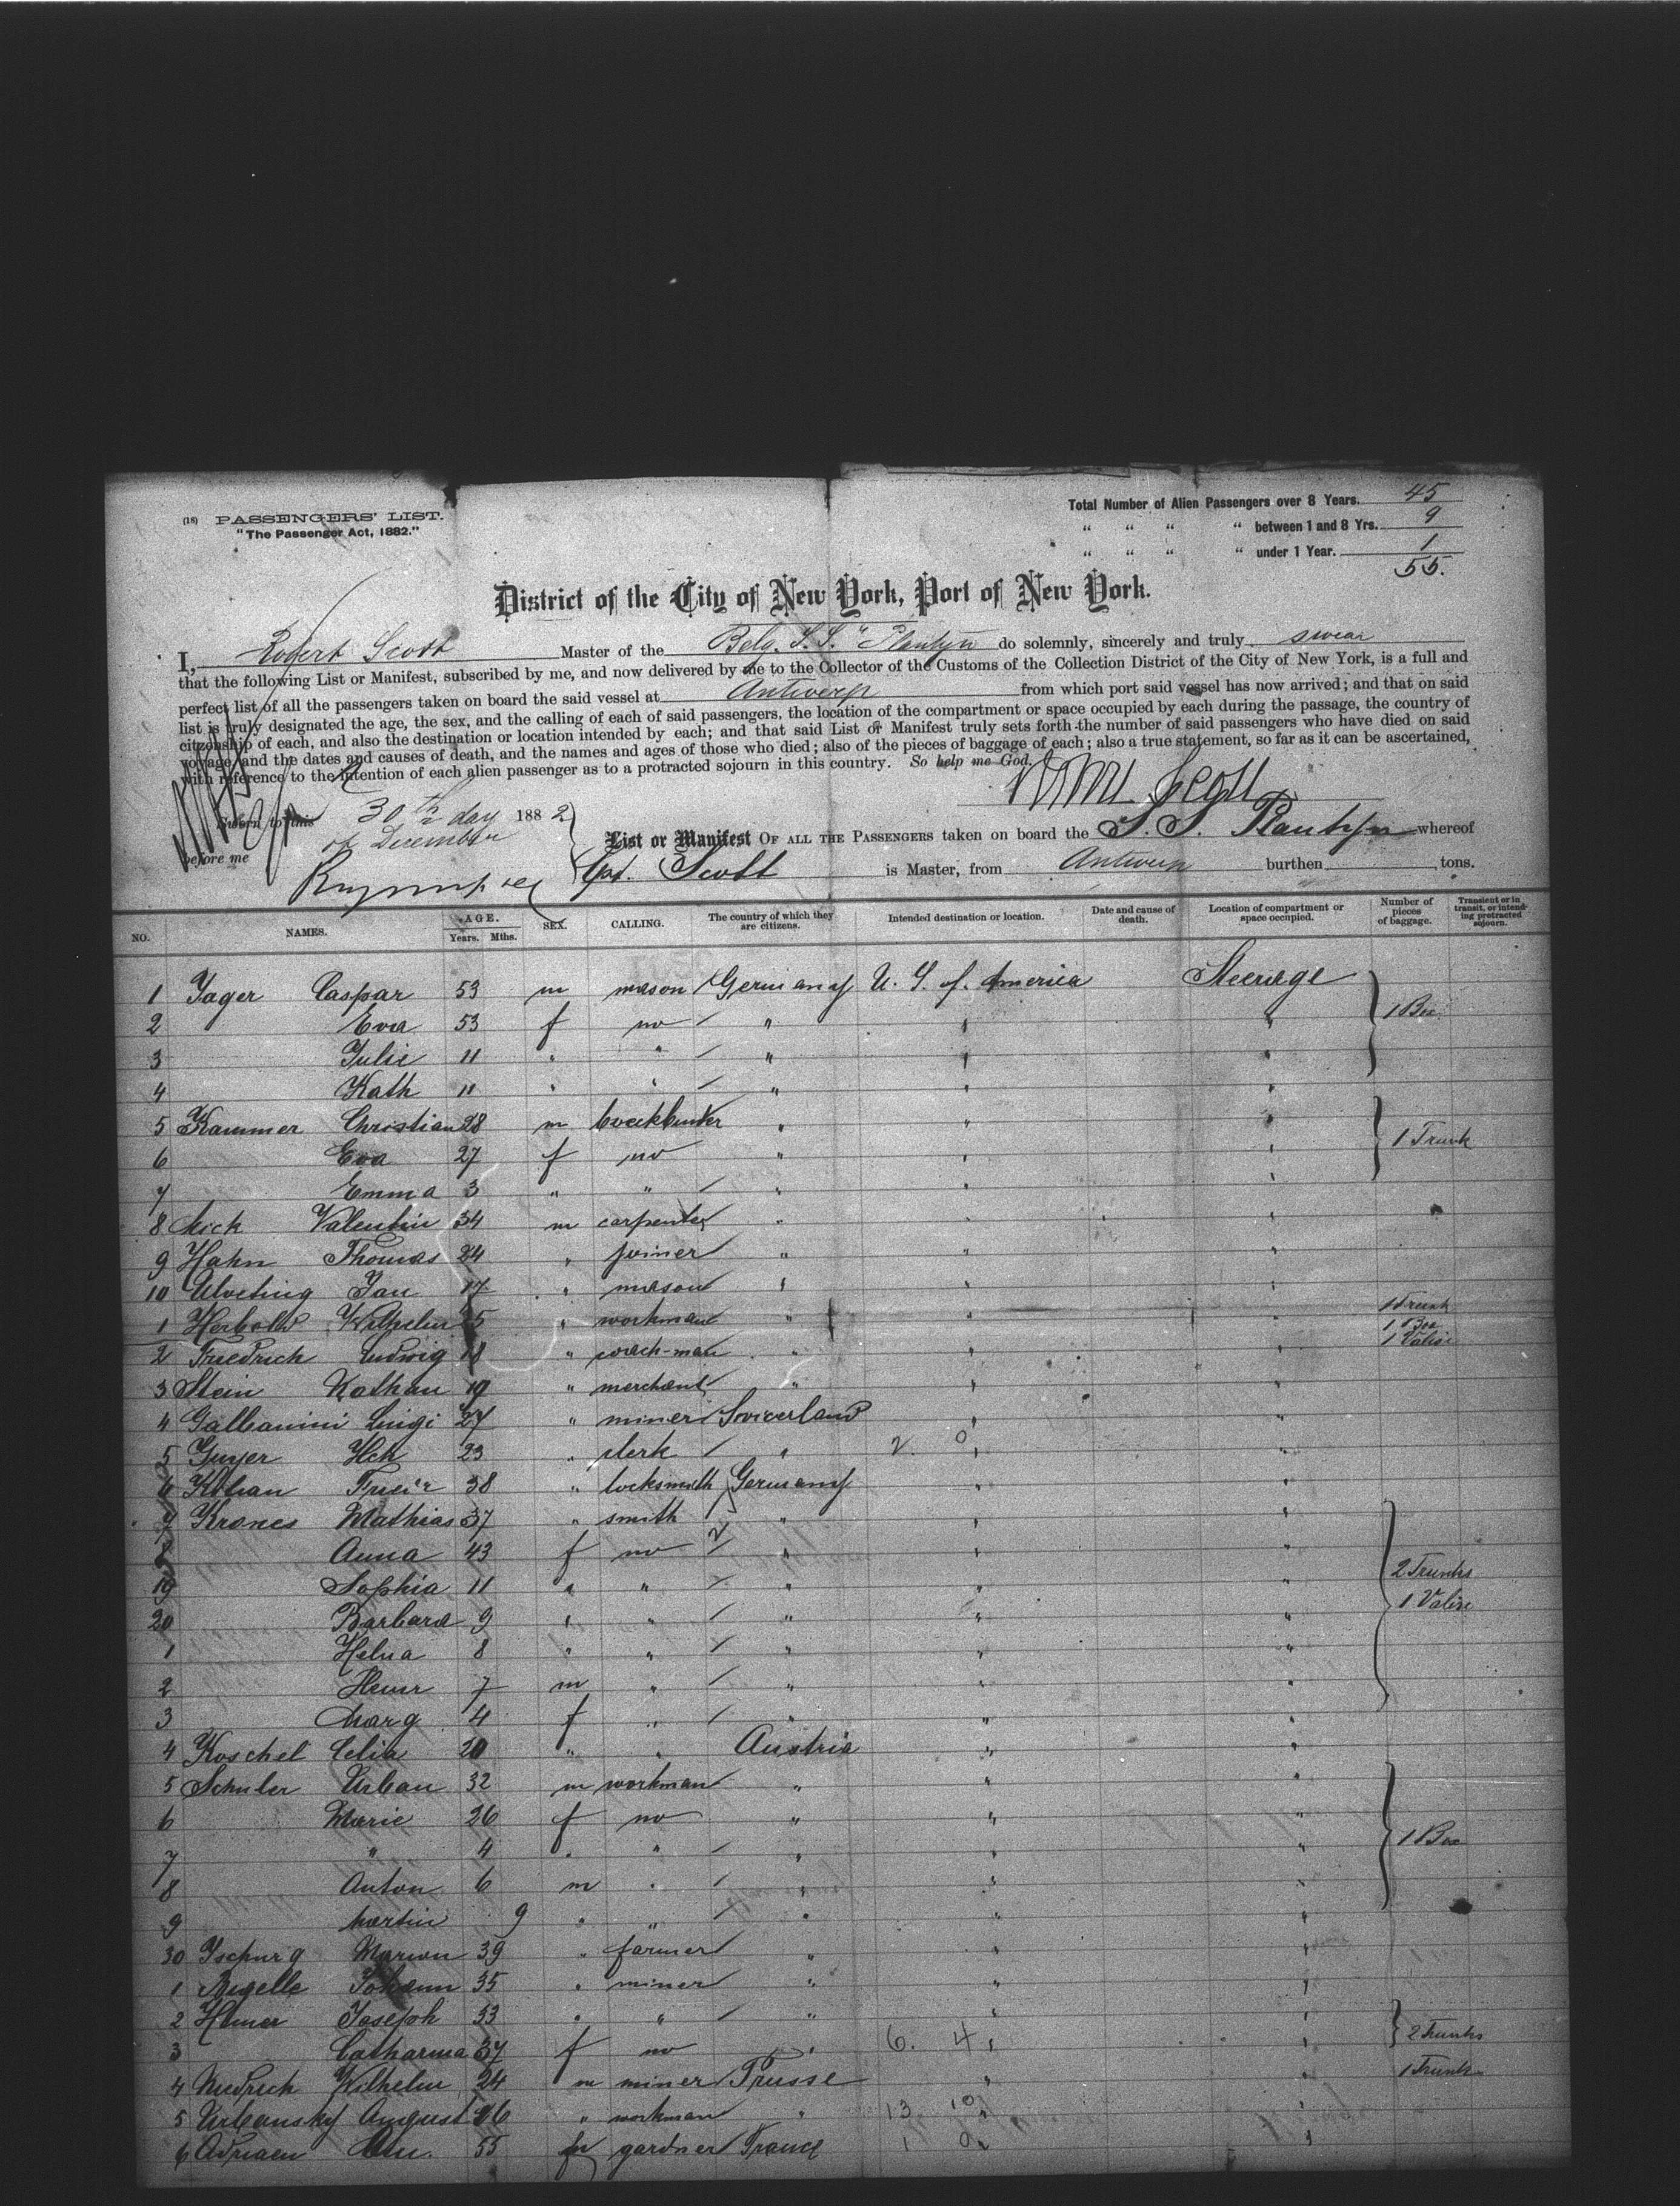 (18) PASSENGERS' LIST.
"The Passenger Act, 1882."
Total Number of Alien Passengers over 8 Years. 45
" " " " between 1 and 8 Yrs. 9
" " " " under 1 Year. 1
55.
District of the City of New York, Port of New York.
I, Robert Scott Master of the Belg. S.S. "Plantyn do solemnly, sincerely and truly swear
that the following List or Manifest, subscribed by me, and now delivered by me to the Collector of the Customs of the Collection District of the City of New York, is a full and
perfect list of all the passengers taken on board the said vessel at Antwerp from which port said vessel has now arrived; and that on said
list is truly designated the age, the sex, and the calling of each of said passengers, the location of the compartment or space occupied by each during the passage, the country of
citizenship of each, and also the destination or location intended by each; and that said List or Manifest truly sets forth the number of said passengers who have died on said
voyage, and the dates and causes of death, and the names and ages of those who died; also of the pieces of baggage of each; also a true statement, so far as it can be ascertained,
with reference to the intention of each alien passenger as to a protracted sojourn in this country. So help me God.
Scott
Sworn to this 30th day 1882
of December
before me
List or Manifest OF ALL THE PASSENGERS taken on board the S. S. Plantyn whereof
Cpt. Scott is Master, from Antwerp burthen tons.
NO. NAMES. AGE. Years. Mths. SEX. CALLING. The country of which they are citizens. Intended destination or location. Date and cause of death. Location of compartment or space occupied. Number of pieces of baggage. Transient or in transit, or intending protracted sojourn.
1 Jager Caspar 53 m mason Germany U. S. of America Steerage
2 Eva 53 f no " " " 1 Box
3 Julie 11 " " " " "
4 Kath 11 " " " " "
5 Kammer Christian 28 m " " "
6 Eva 27 f no " " " 1 Trunk
7 Emma 3 " " " " "
8 Mich Valentin 34 m carpenter " " "
9 Hahn Thomas 24 " joiner " " "
10 Ulveling Jan 17 " mason " " "
1 Herbold Wilhelm 25 " workman " " " 1 Trunk 1 Box
2 Friedrich Ludwig 18 " coach-man " " " 1 Valise
3 Stein Nathan 19 " merchant " " "
4 Galbanini Luigi 27 " miner Svicerland " "
5 Guyer Hch 23 " clerk " 2. 0 " "
6 Kilian 38 " locksmith Germany " "
7 Krones Mathias 37 " smith " " "
8 Anna 43 f no " " "
19 Sophia 11 " " " " " 2 Trunks
20 Barbara 9 " " " " " 1 Valise
1 Helna 8 " " " " "
2 7 m " " " "
3 Marg 4 f " " " "
4 Koschel Celia 20 " " Austria " "
5 Schuler Urban 32 m workman " " "
6 Marie 26 f no " " "
7 " 4 " " " " " 1 Box
8 Anton 6 m " " " "
9 Martin 9 " " " " "
30 Marion 39 " farmer " " "
1 Johann 35 " miner " " "
2 Joseph 33 " " " " "
3 Catharina 37 f no " 6. 4 " " 2 Trunks
4 Wilhelm 24 m miner Prusse " " 1 Trunk
5 Urbansky August 26 " workman " 13 10 " "
6 Adriaen 55 gardner France 1 0 " "